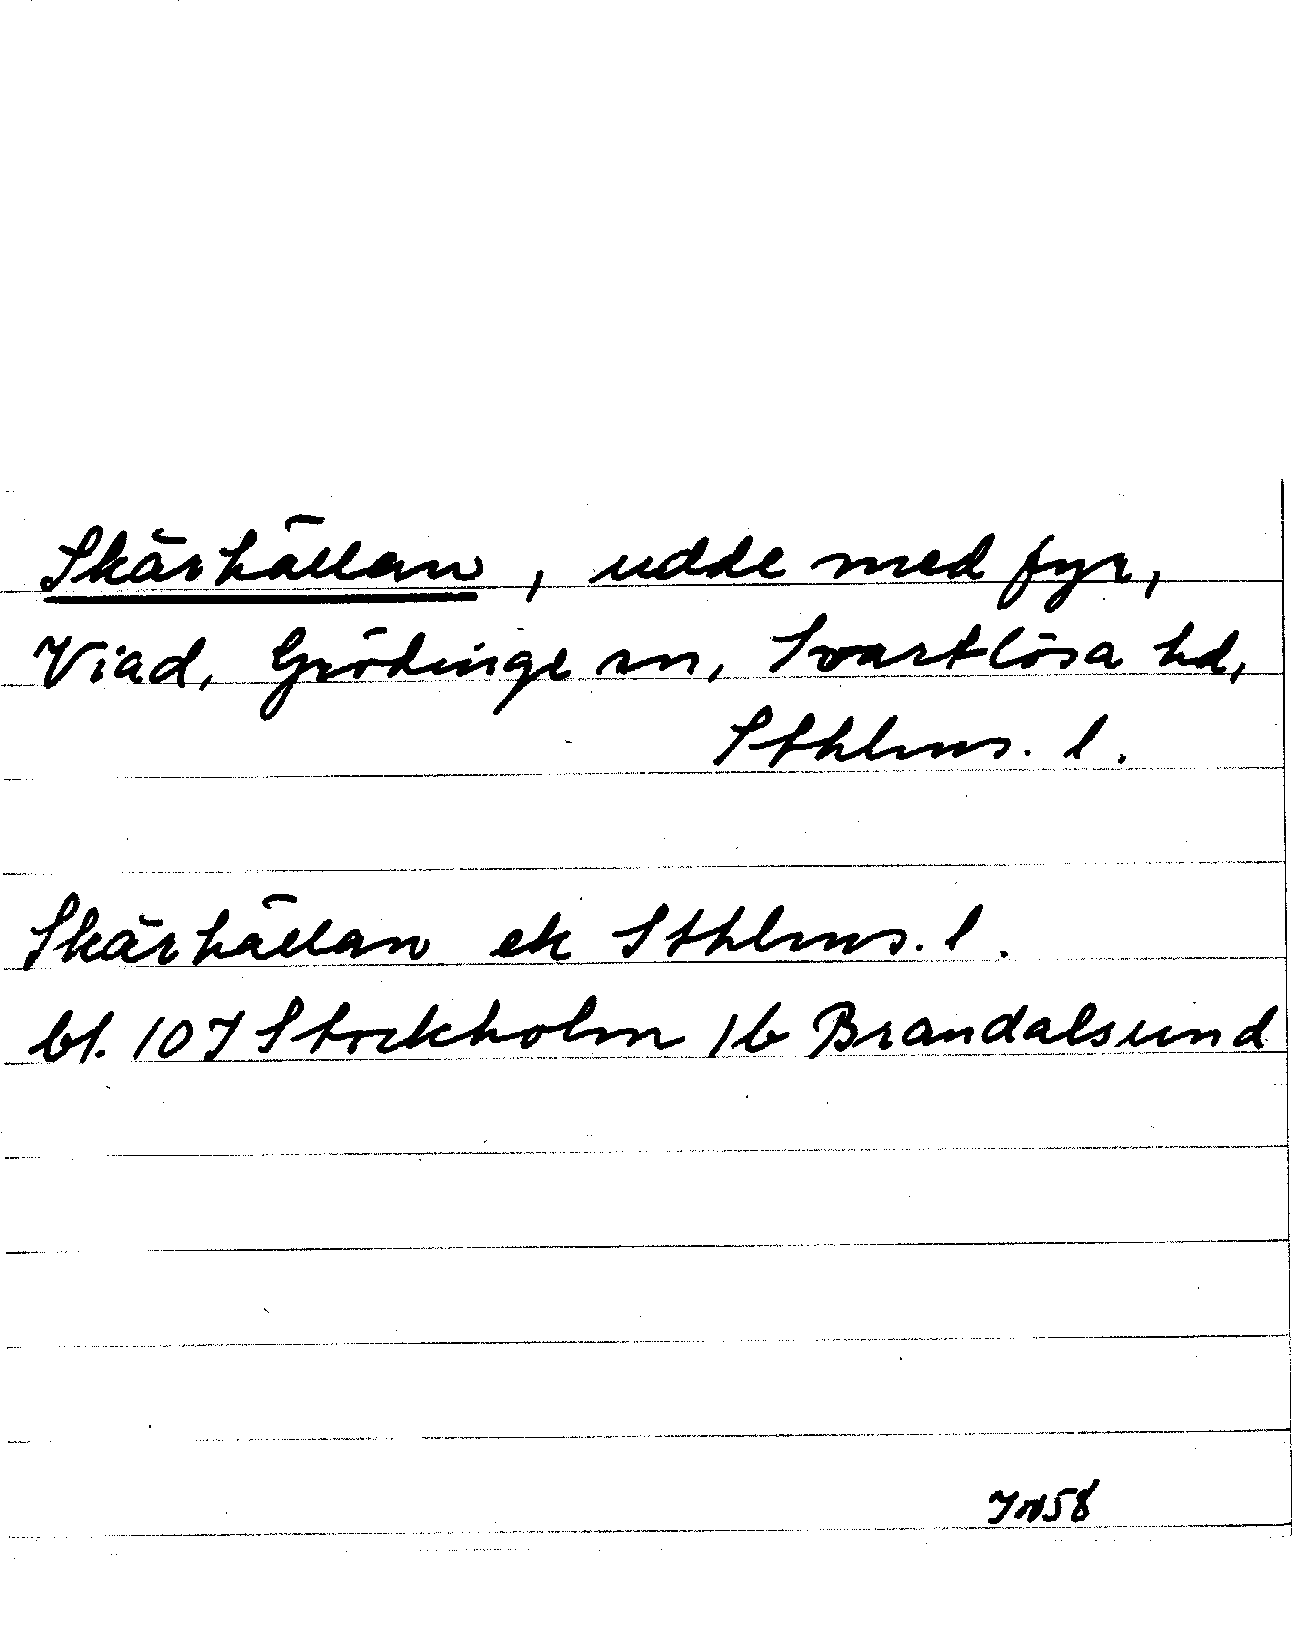 Skärhällan, udde med fyr,
Viad, Grödinge sn, Svartlösa hd,
Sthlms. l.
Skärhällan ek Sthlms. l.
bl. 107 Stockholm 1b Brandalsund